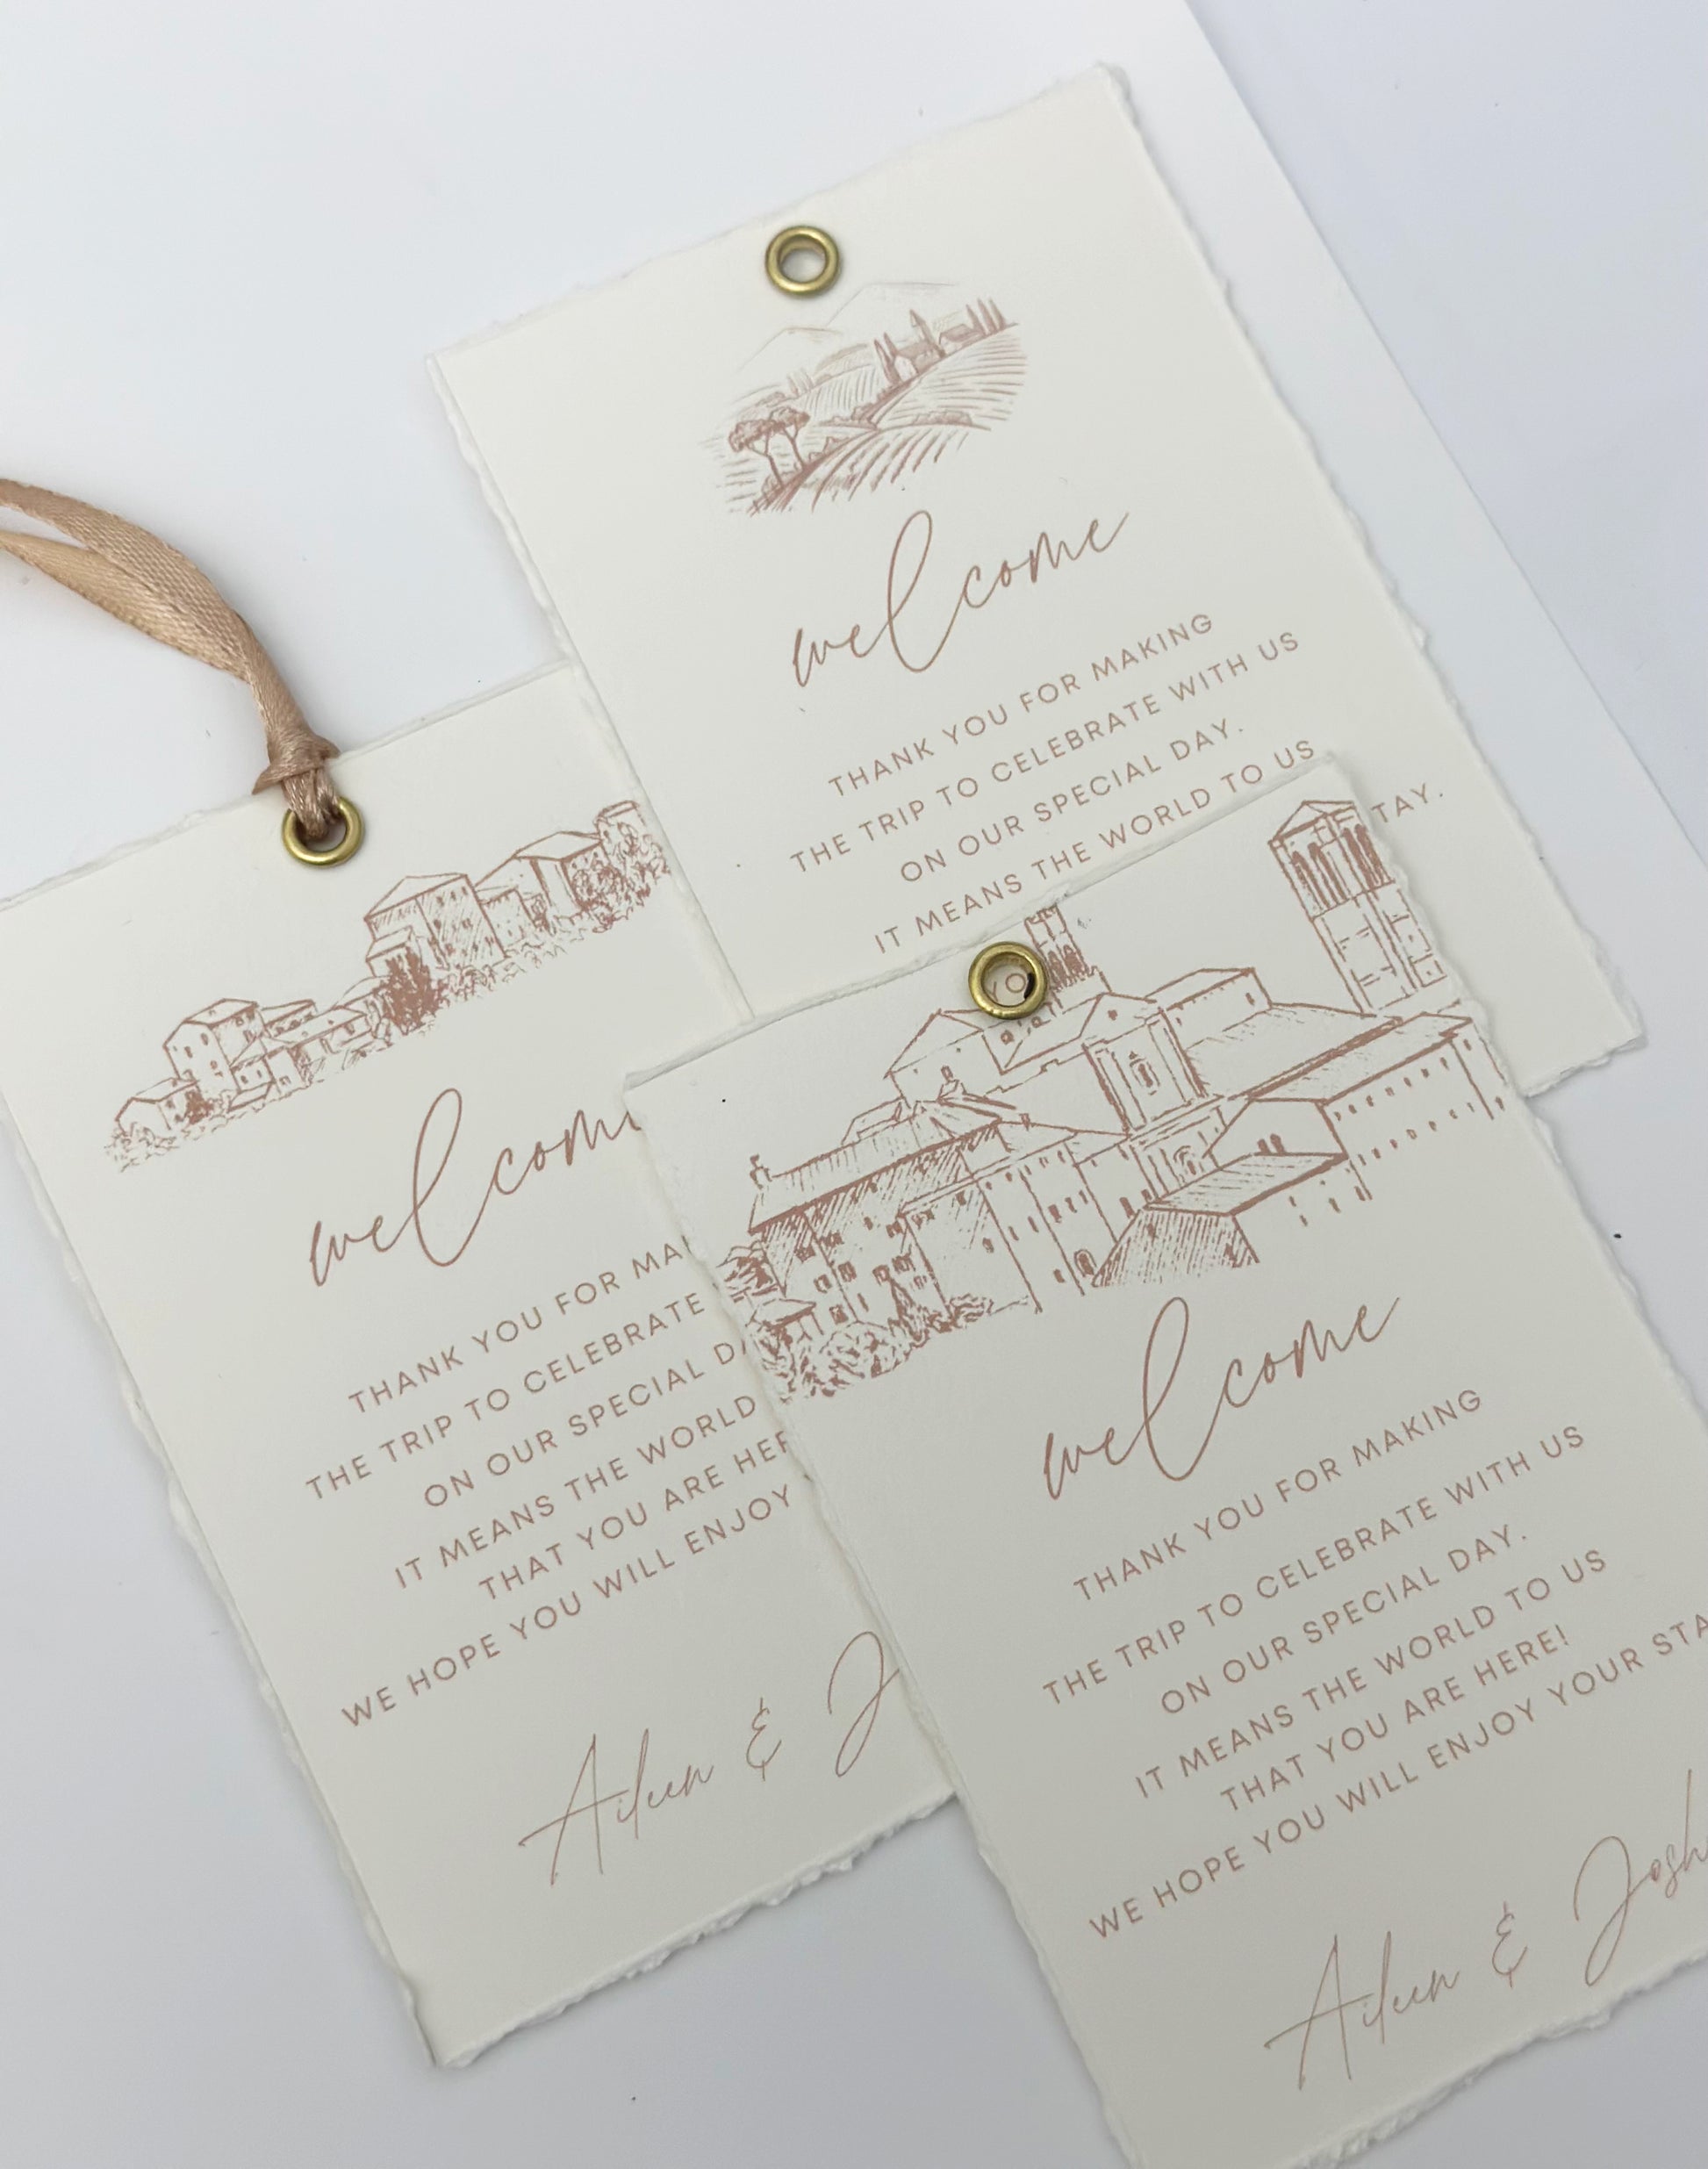 welcome
THANK YOU FOR MAKING
THE TRIP TO CELEBRATE WITH US
ON OUR SPECIAL DAY.
IT MEANS THE WORLD TO US
welcome
THANK YOU FOR
THE TRIP TO CELEBRATE
ON OUR SPECIAL
IT MEANS THE WORLD
THAT YOU ARE
WE HOPE YOU WILL ENJOY
Aileen &
welcome
THANK YOU FOR MAKING
THE TRIP TO CELEBRATE WITH US
ON OUR SPECIAL DAY.
IT MEANS THE WORLD TO US
THAT YOU ARE HERE!
WE HOPE YOU WILL ENJOY YOUR
Aileen &